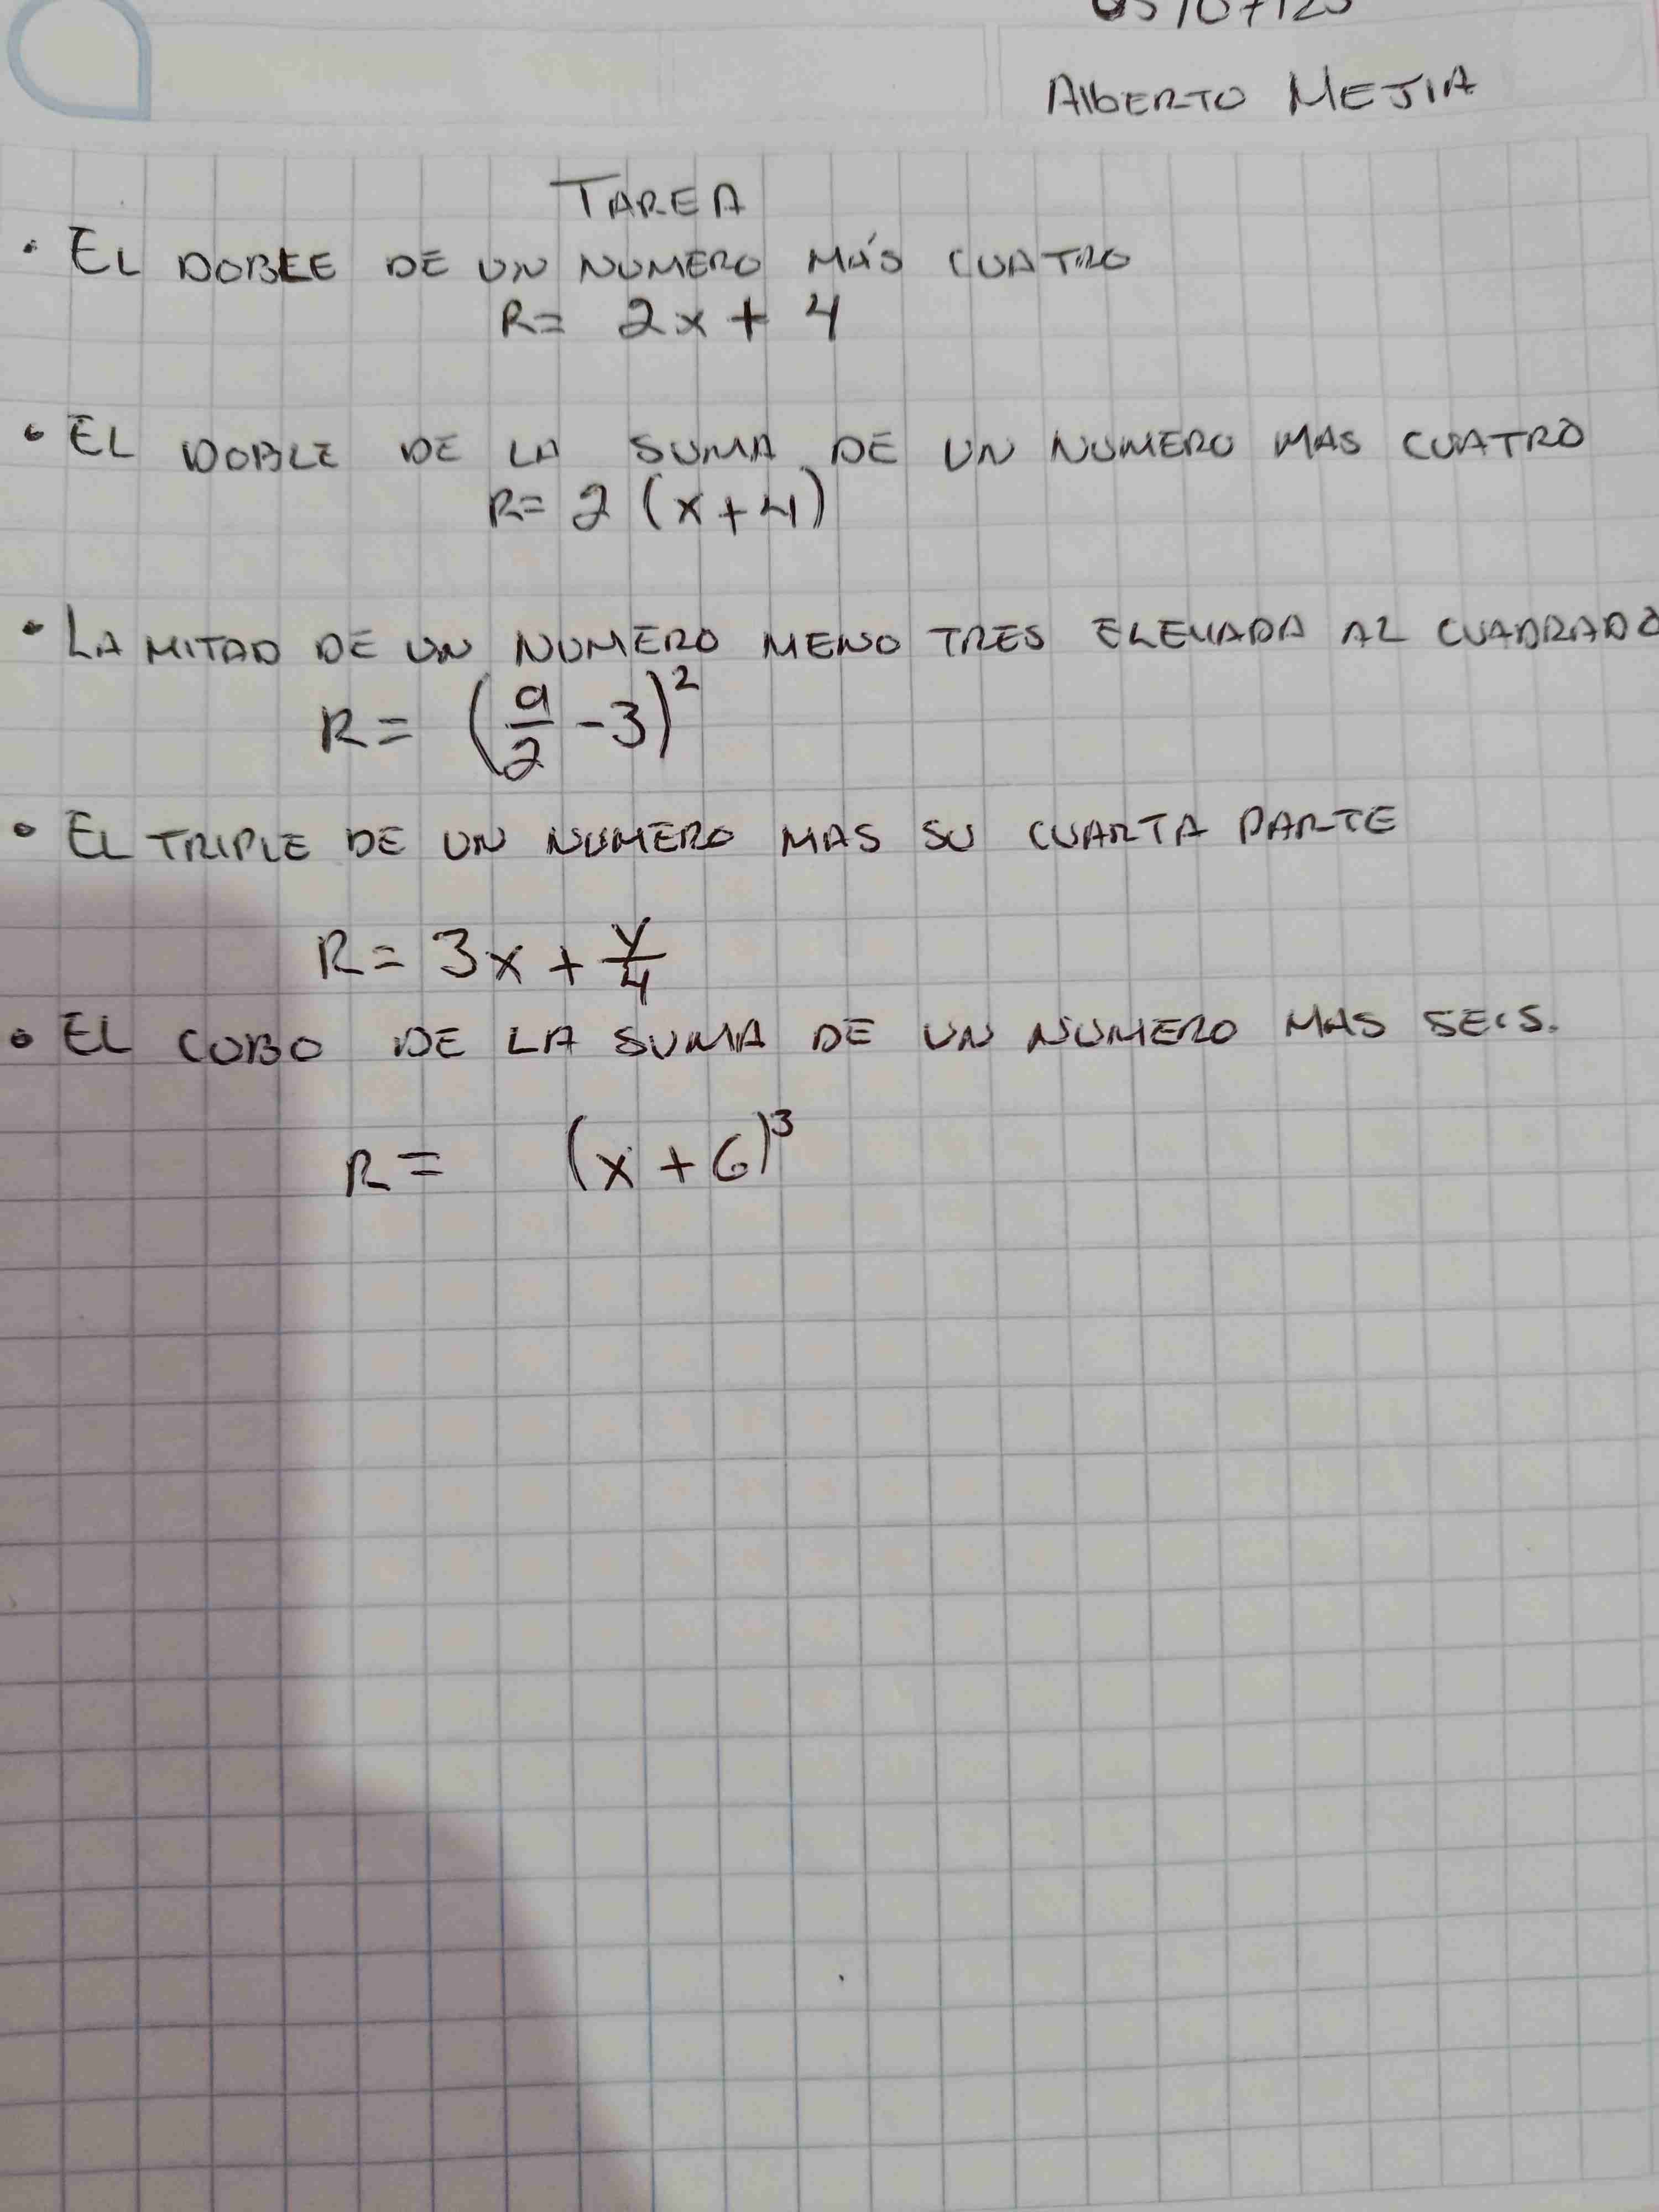 05/07/25
Alberto MEJIA
TAREA
• EL DOBLE DE UN NUMERO MÁS CUATRO
R= 2x + 4
• EL DOBLE DE LA SUMA DE UN NUMERO MAS CUATRO
R= 2 (x+4)
• LA MITAD DE UN NUMERO MENO TRES ELEVADA AL CUADRADO
R= (a/2 -3)²
• EL TRIPLE DE UN NUMERO MAS SU CUARTA PARTE
R= 3x + y/4
• EL CUBO DE LA SUMA DE UN NUMERO MAS SEIS.
R= (x + 6)³